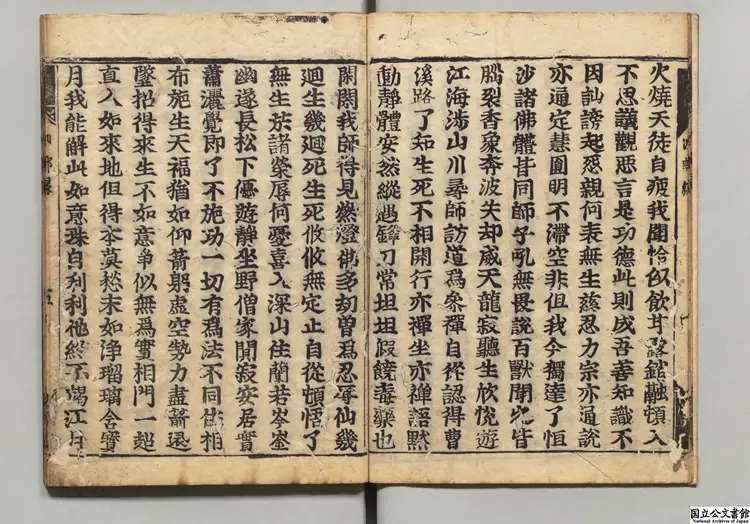 火燒天徒自疲我聞恰似飲甘露銷融頓入
不思議觀惡言是功德此則成吾善知識不
因訕謗起惌親何表無生慈忍力宗亦通說
亦通定慧圓明不滯空非但我今獨達了恒
沙諸佛體皆同師子吼無畏說百獸聞之皆
腦裂香象奔波失却威天龍寂聽生欣悅遊
江海涉山川尋師訪道爲叅禪自從認得曹
溪路了知生死不相關行亦禪坐亦禪語默
動靜體安然縱遇鋒刀常坦坦假饒毒藥也
閑閑我師得見然澄佛多劫曾爲忍辱仙幾
迴生幾迴死生死悠悠無定止自從頓悟了
無生於諸榮辱何憂喜入深山住蘭若岑崟
幽邃長松下優遊靜坐野僧家閴寂安居實
蕭灑覺即了不施功一切有爲法不同住相
布施生天福猶如仰箭射虛空勢力盡箭還
墜招得來生不如意爭似無爲實相門一超
直入如來地但得本莫愁末如淨瑠璃含寶
月我能解此如意珠自利利他終不竭江月
国立公文書館
National Archives of Japan